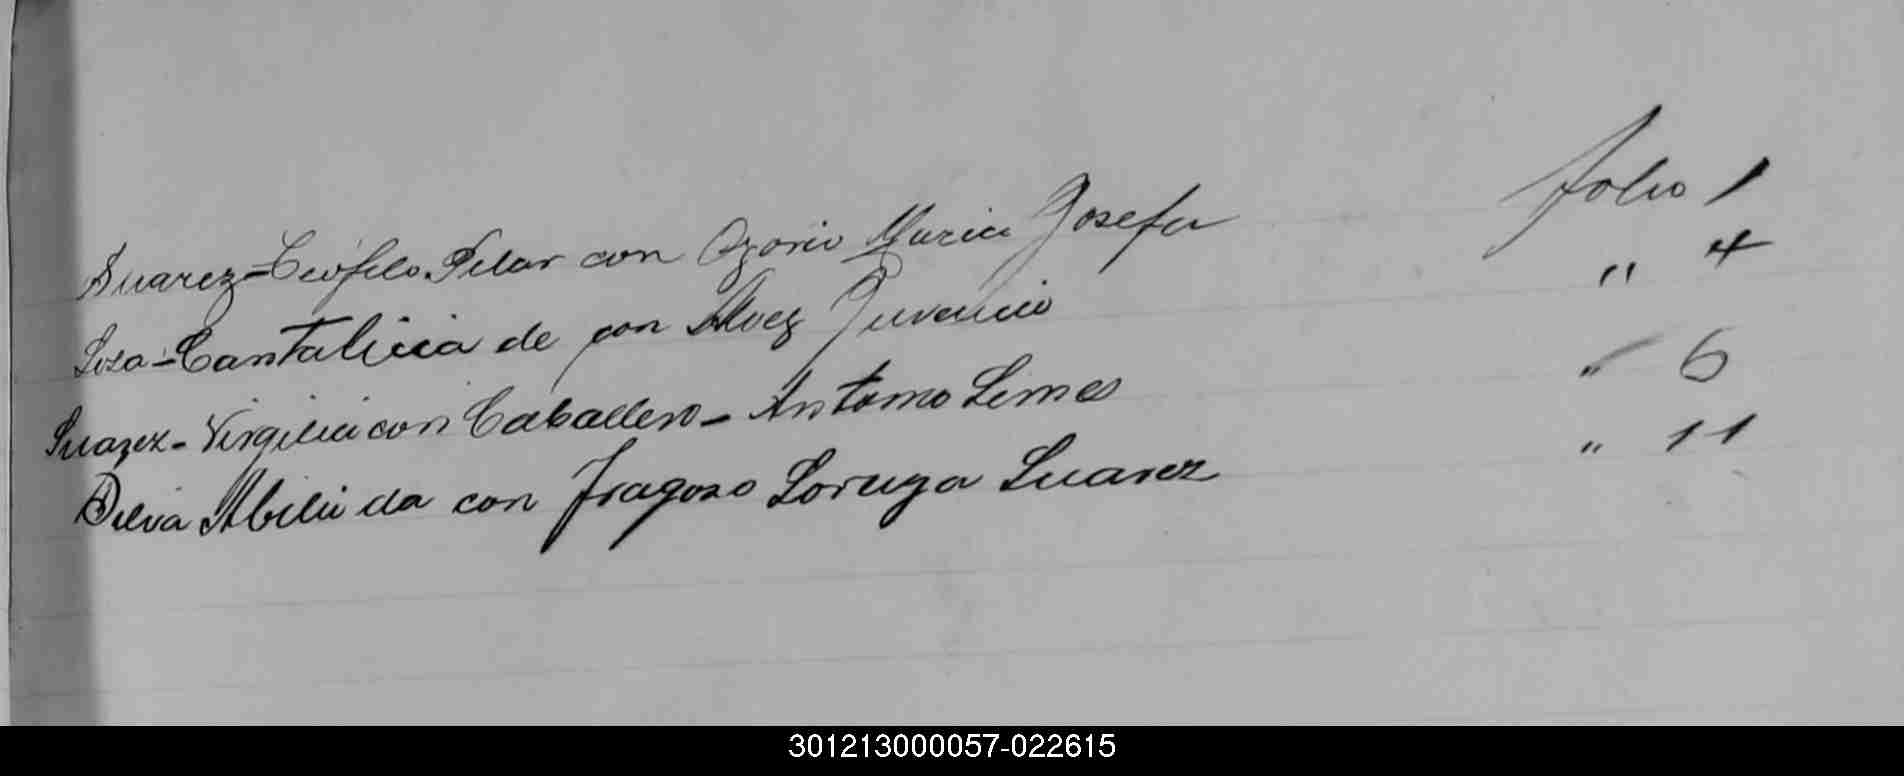 Suarez-Teófilo Pilar con Ozorio Maria Josefa folio 1
Sosa-Cantalicia de con Alvez Juvencio " 4
Suarez-Virgilia con Caballero-Antonio Lemes " 6
Silva Abilio da con Fragoso Suarez " 11
301213000057-022615